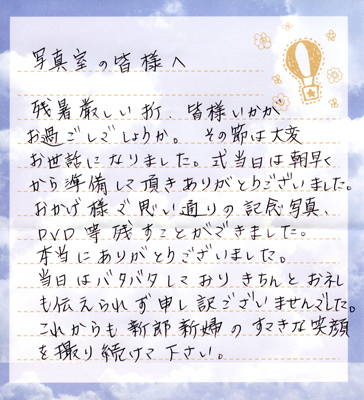 写真室の皆様へ
残暑厳しい折、皆様いかが
お過ごしでしょうか。その節は大変
お世話になりました。式当日は朝早く
から準備して頂きありがとうございました。
おかげ様で思い通りの記念写真、
DVD等残すことができました。
本当にありがとうございました。
当日はバタバタしており きちんとお礼
も伝えられず申し訳ございませんでした。
これからも新郎新婦のすてきな笑顔
を撮り続けて下さい。